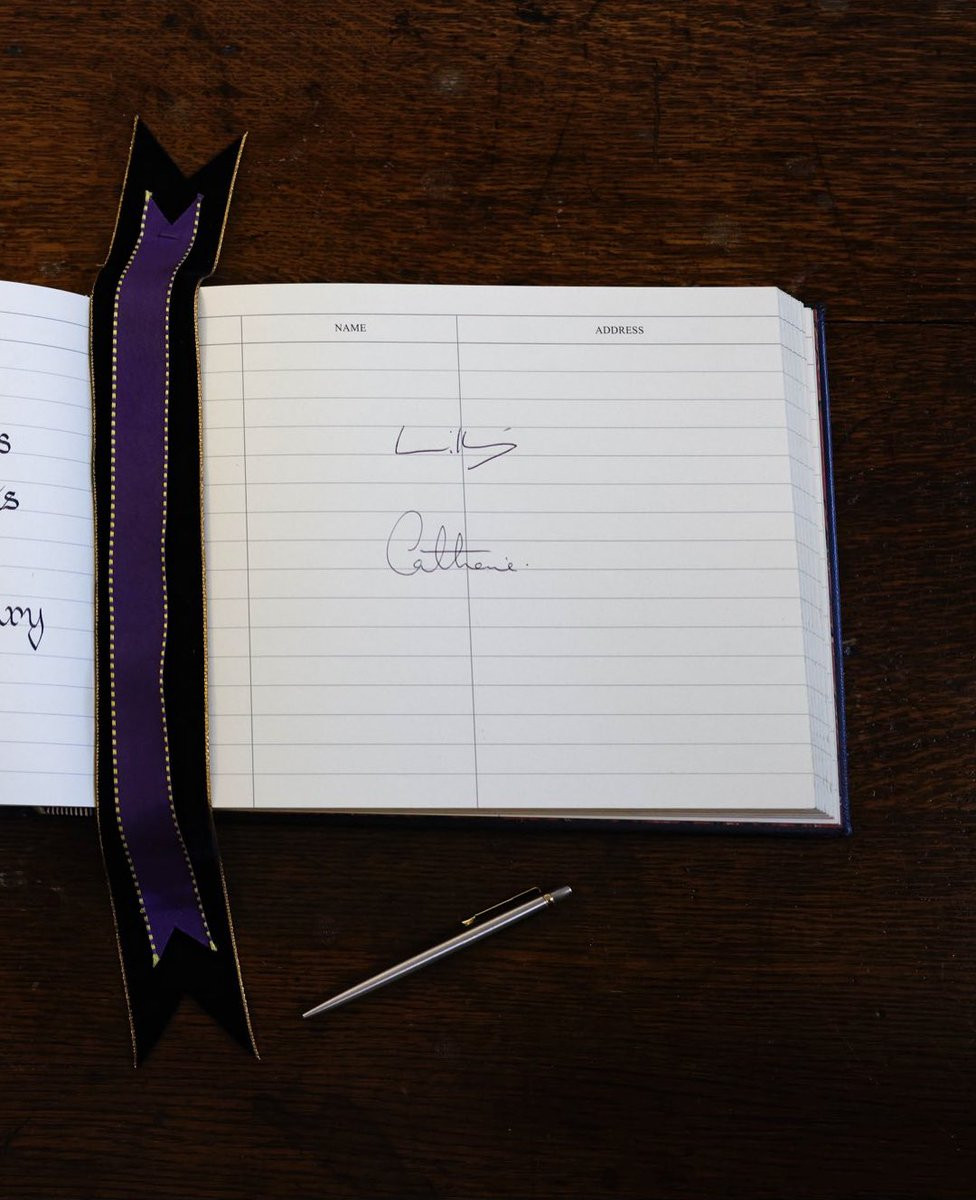 NAME ADDRESS
Catherine.
s
s
xy